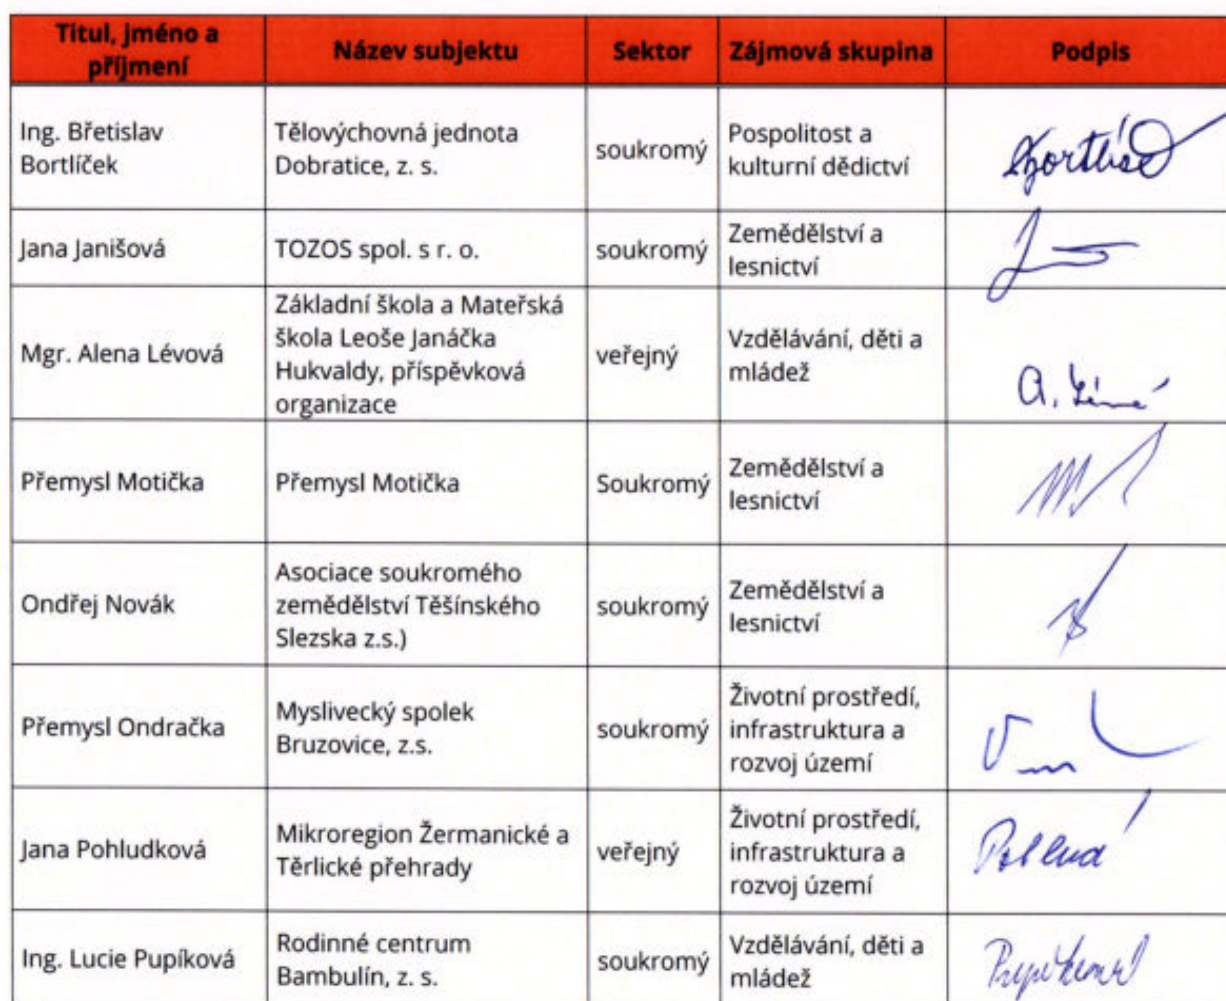 Titul, jméno a
příjmení
Název subjektu
Sektor
Zájmová skupina
Podpis
Ing. Břetislav
Bortlíček
Tělovýchovná jednota
Dobratice, z. s.
soukromý
Pospolitost a
kulturní dědictví
Jana Janišová
TOZOS spol. s r. o.
soukromý
Zemědělství a
lesnictví
Mgr. Alena Lévová
Základní škola a Mateřská
škola Leoše Janáčka
Hukvaldy, příspěvková
organizace
veřejný
Vzdělávání, děti a
mládež
Přemysl Motička
Přemysl Motička
Soukromý
Zemědělství a
lesnictví
Ondřej Novák
Asociace soukromého
zemědělství Těšínského
Slezska z.s.)
soukromý
Zemědělství a
lesnictví
Přemysl Ondračka
Myslivecký spolek
Bruzovice, z.s.
soukromý
Životní prostředí,
infrastruktura a
rozvoj území
Jana Pohludková
Mikroregion Žermanické a
Těrlické přehrady
veřejný
Životní prostředí,
infrastruktura a
rozvoj území
Ing. Lucie Pupíková
Rodinné centrum
Bambulín, z. s.
soukromý
Vzdělávání, děti a
mládež